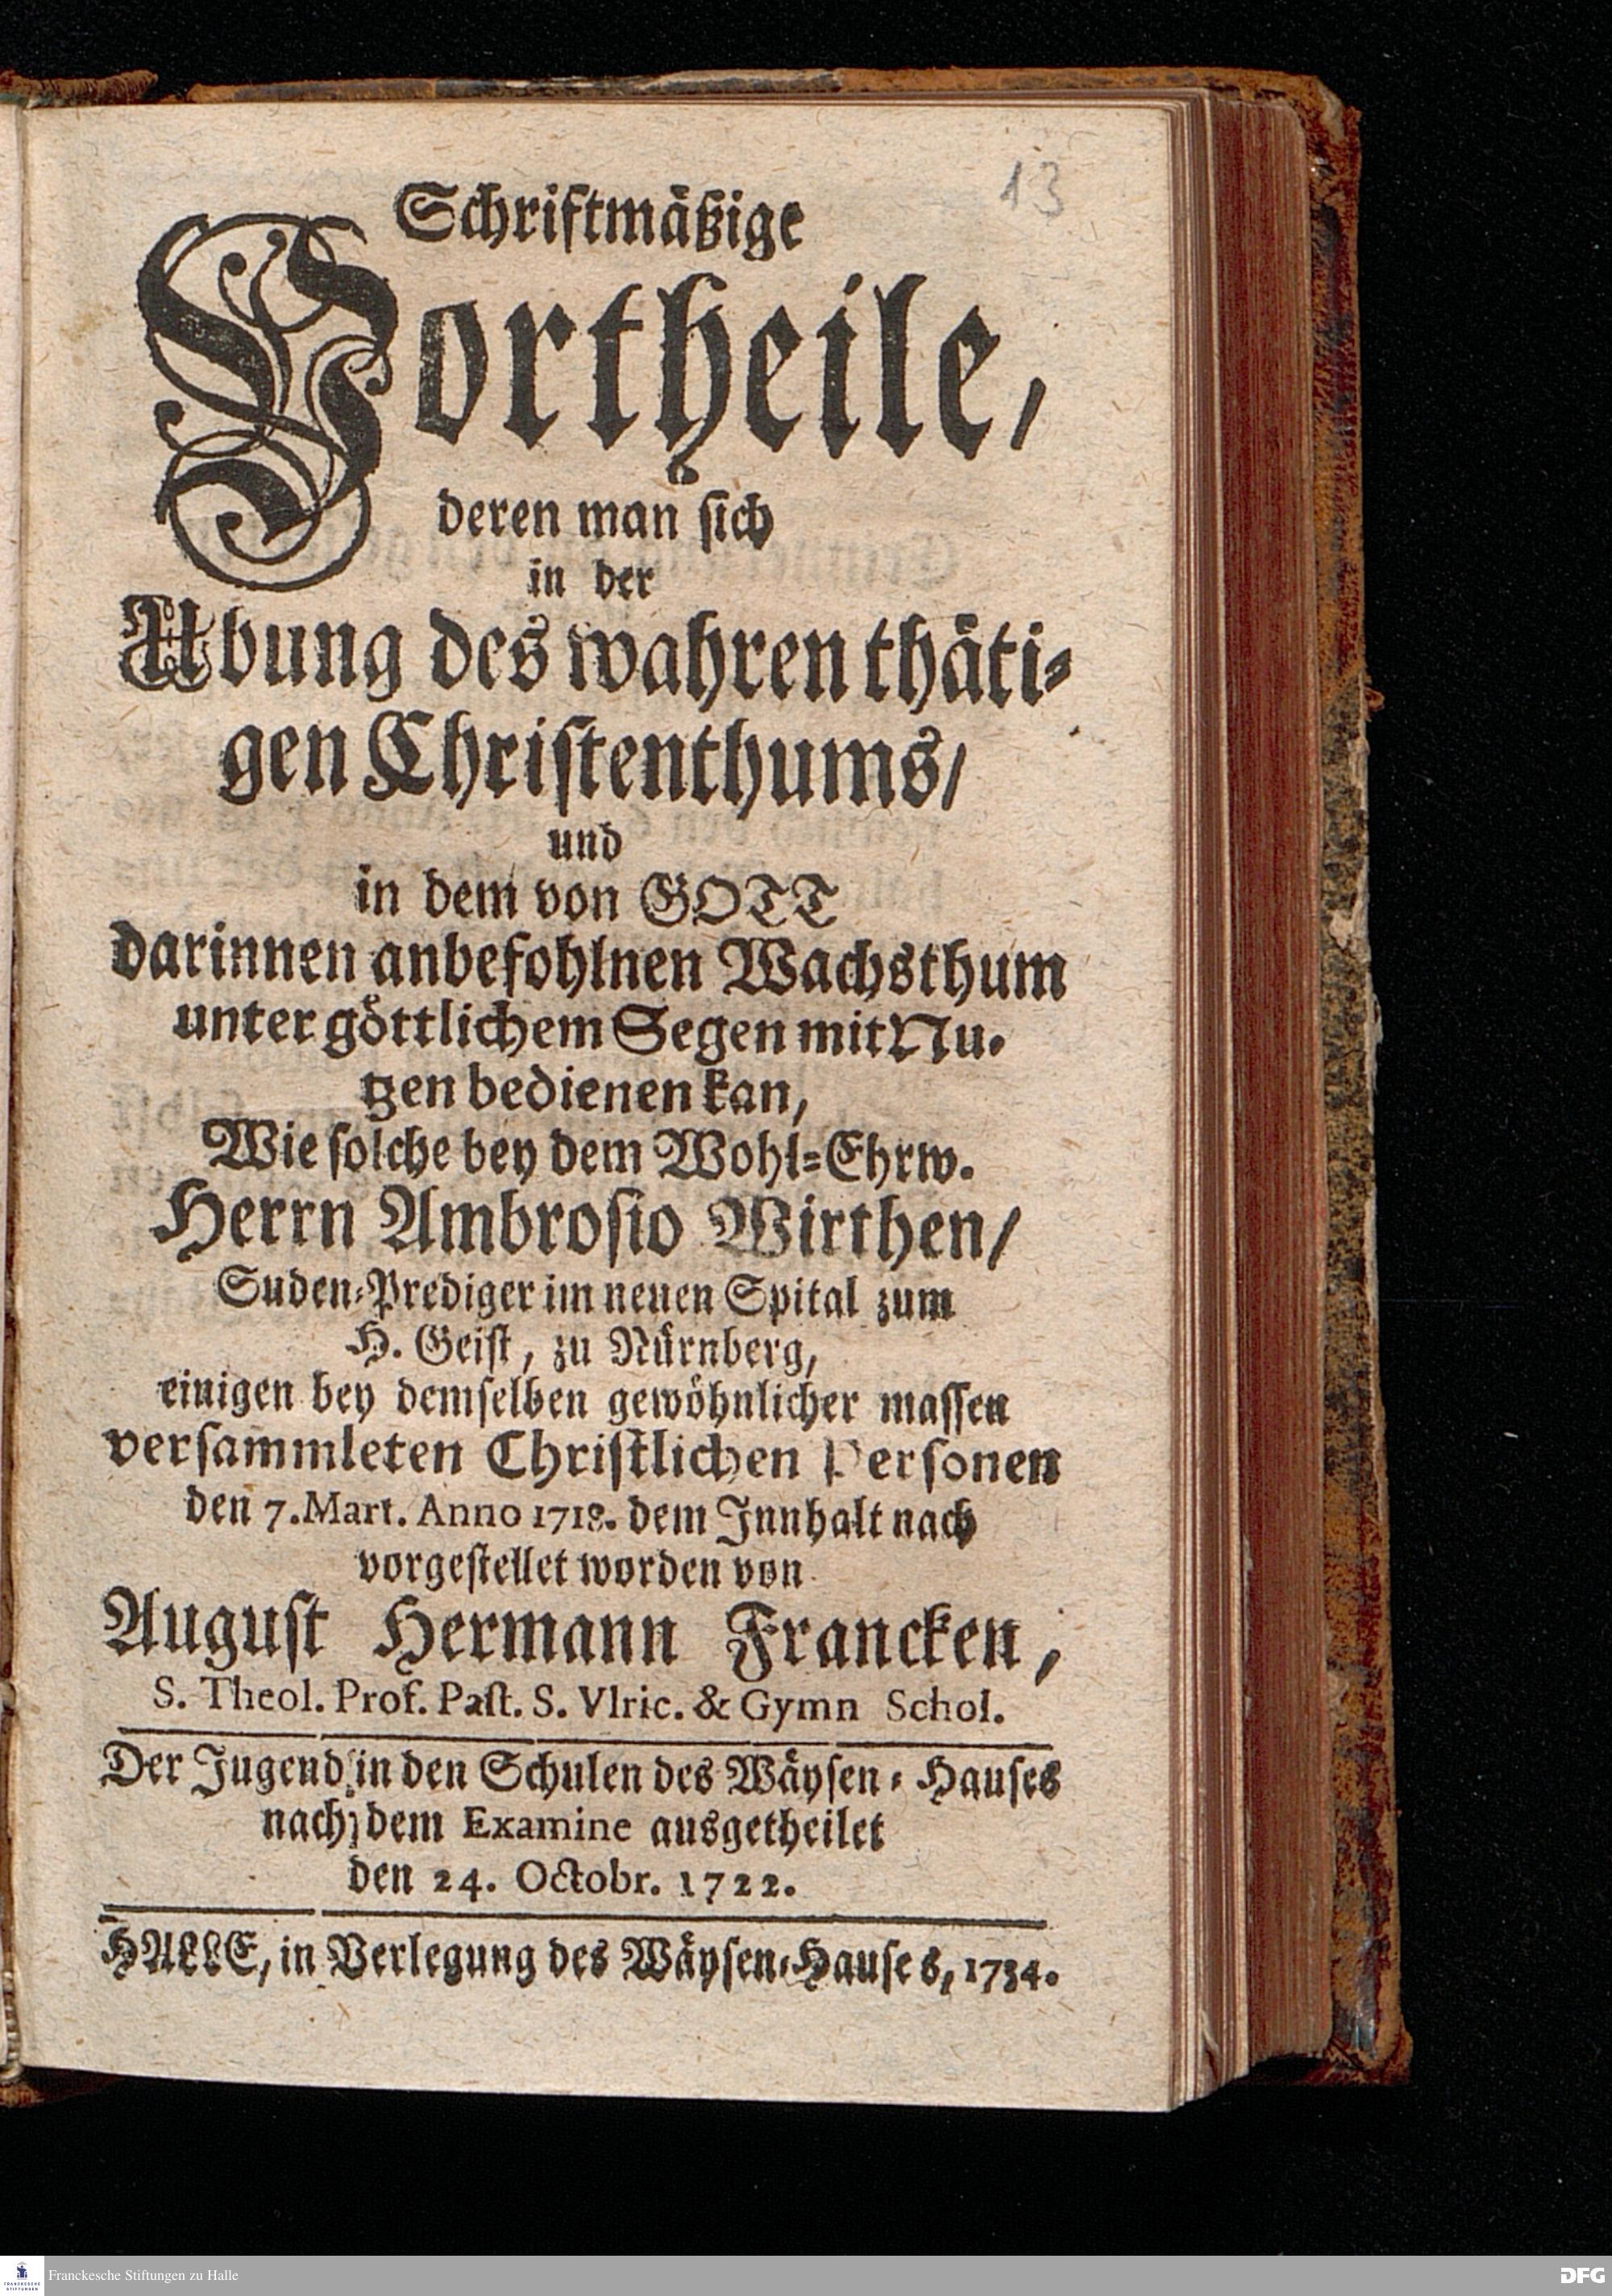 13
Schriftmäßige
Vortheile,
deren man sich
in der
Ubung des wahren thäti-
gen Christenthums/
und
in dem von GOTT
darinnen anbefohlnen Wachsthum
unter göttlichem Segen mit Nu-
tzen bedienen kan,
Wie solche bey dem Wohl-Ehrw.
Herrn Ambrosio Wirthen/
Suden-Prediger im neuen Spital zum
H. Geist, zu Nürnberg,
einigen bey demselben gewöhnlicher massen
versammleten Christlichen Personen
den 7. Mart. Anno 1718. dem Innhalt nach
vorgestellet worden von
August Hermann Francken,
S. Theol. Prof. Past. S. Vlric. & Gymn Schol.
Der Jugend in den Schulen des Wäysen-Hauses
nach dem Examine ausgetheilet
den 24. Octobr. 1722.
HALLE, in Verlegung des Wäysen-Hauses, 1734.
Franckesche Stiftungen zu Halle
FRANCKESCHE
STIFTUNGEN
DFG